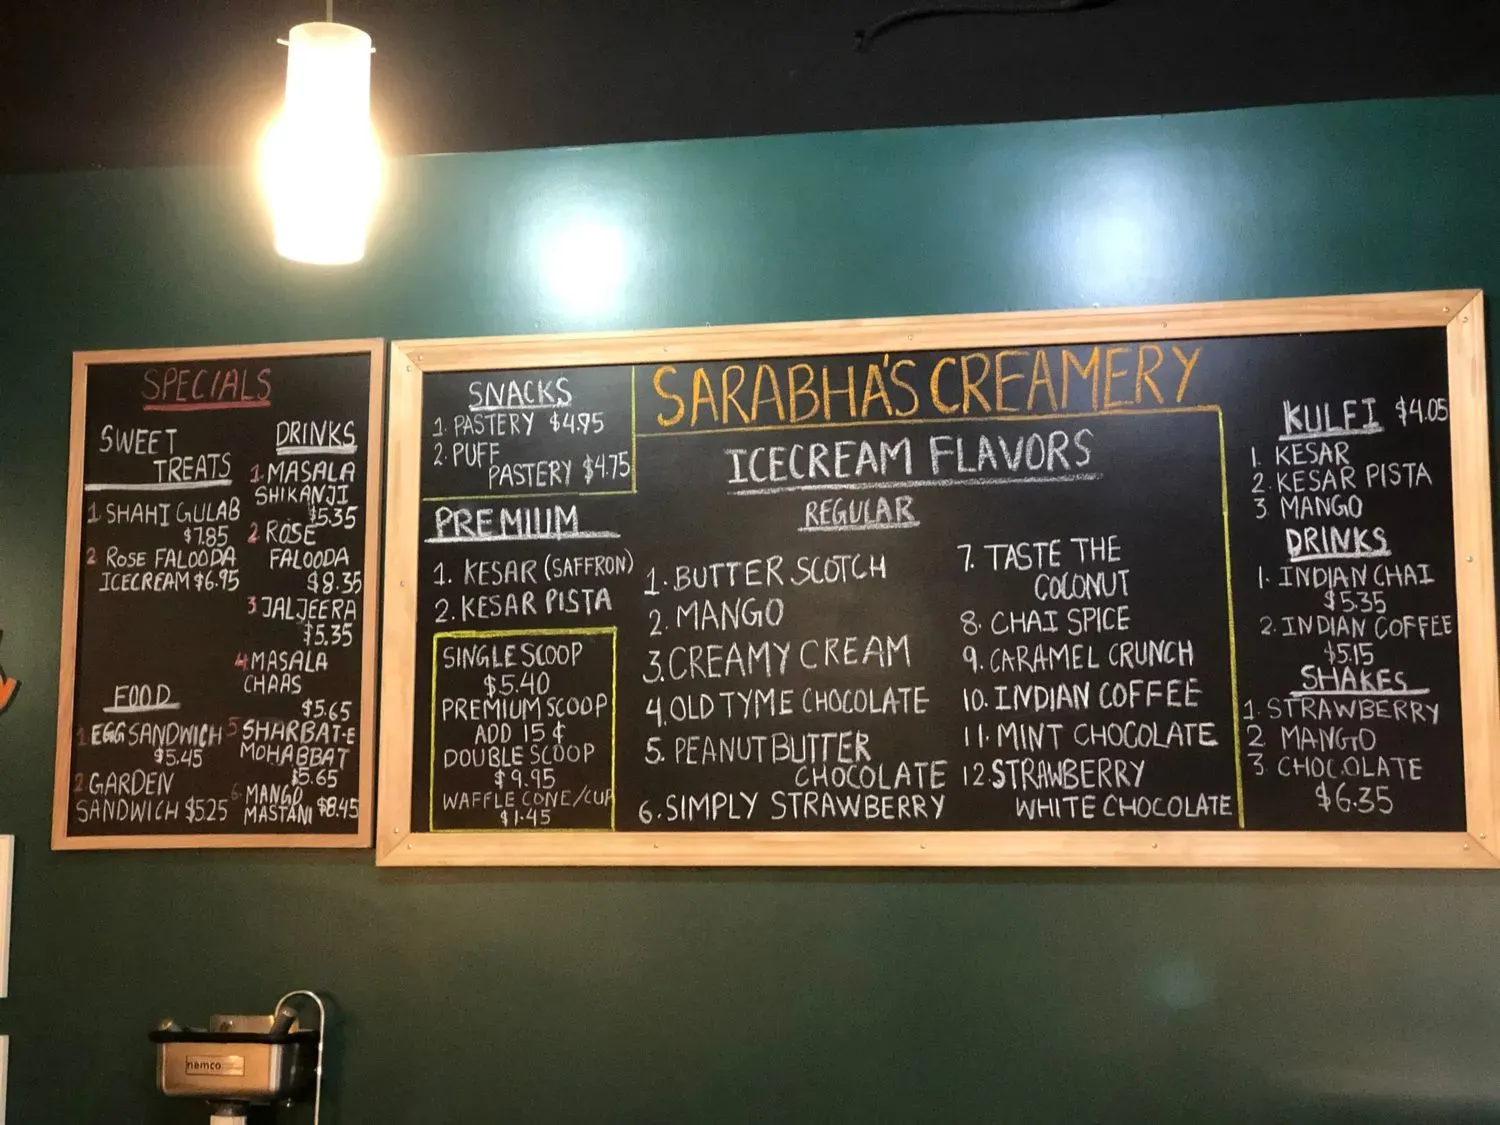 SPECIALS
SWEET
TREATS
1 SHAHI GULAB
$7.85
2 ROSE FALOODA
ICECREAM $6.95
FOOD
1 EGG SANDWICH
$5.45
2 GARDEN
SANDWICH $5.25
DRINKS
1. MASALA
SHIKANJI
$5.35
2 ROSE
FALOODA
$8.35
3 JALJEERA
$5.35
4 MASALA
CHAAS
$5.65
5 SHARBAT-E
MOHABBAT
$5.65
6. MANGO
MASTANI $8.45
SNACKS
1. PASTERY $4.95
2. PUFF
PASTERY $4.75
PREMIUM
1. KESAR (SAFFRON)
2. KESAR PISTA
SINGLE SCOOP
$5.40
PREMIUM SCOOP
ADD 15 ¢
DOUBLE SCOOP
$9.95
WAFFLE CONE/CUP
$1.45
SARABHA'S CREAMERY
ICECREAM FLAVORS
REGULAR
1. BUTTER SCOTCH
2. MANGO
3. CREAMY CREAM
4. OLD TYME CHOCOLATE
5. PEANUT BUTTER
CHOCOLATE
6. SIMPLY STRAWBERRY
7. TASTE THE
COCONUT
8. CHAI SPICE
9. CARAMEL CRUNCH
10. INDIAN COFFEE
11. MINT CHOCOLATE
12. STRAWBERRY
WHITE CHOCOLATE
KULFI $4.05
1. KESAR
2. KESAR PISTA
3. MANGO
DRINKS
1. INDIAN CHAI
$5.35
2. INDIAN COFFEE
$5.15
SHAKES
1. STRAWBERRY
2 MANGO
3. CHOCOLATE
$6.35
nemco